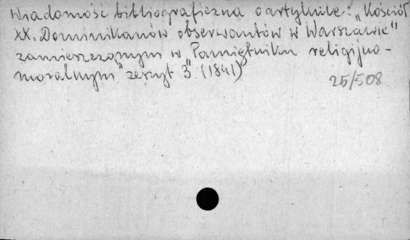 Wiadomość bibliograficzna o artykule: „Kościół
XX. Dominikanów obserwantów w Warszawie"
zamieszczonym w „Pamiętniku religijno-
moralnym" zeszyt 3 (1841)
25/508